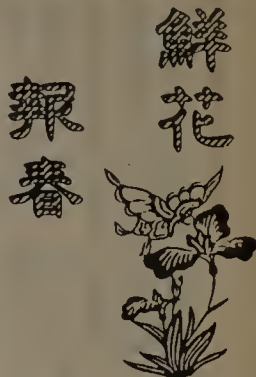 鮮花
報春